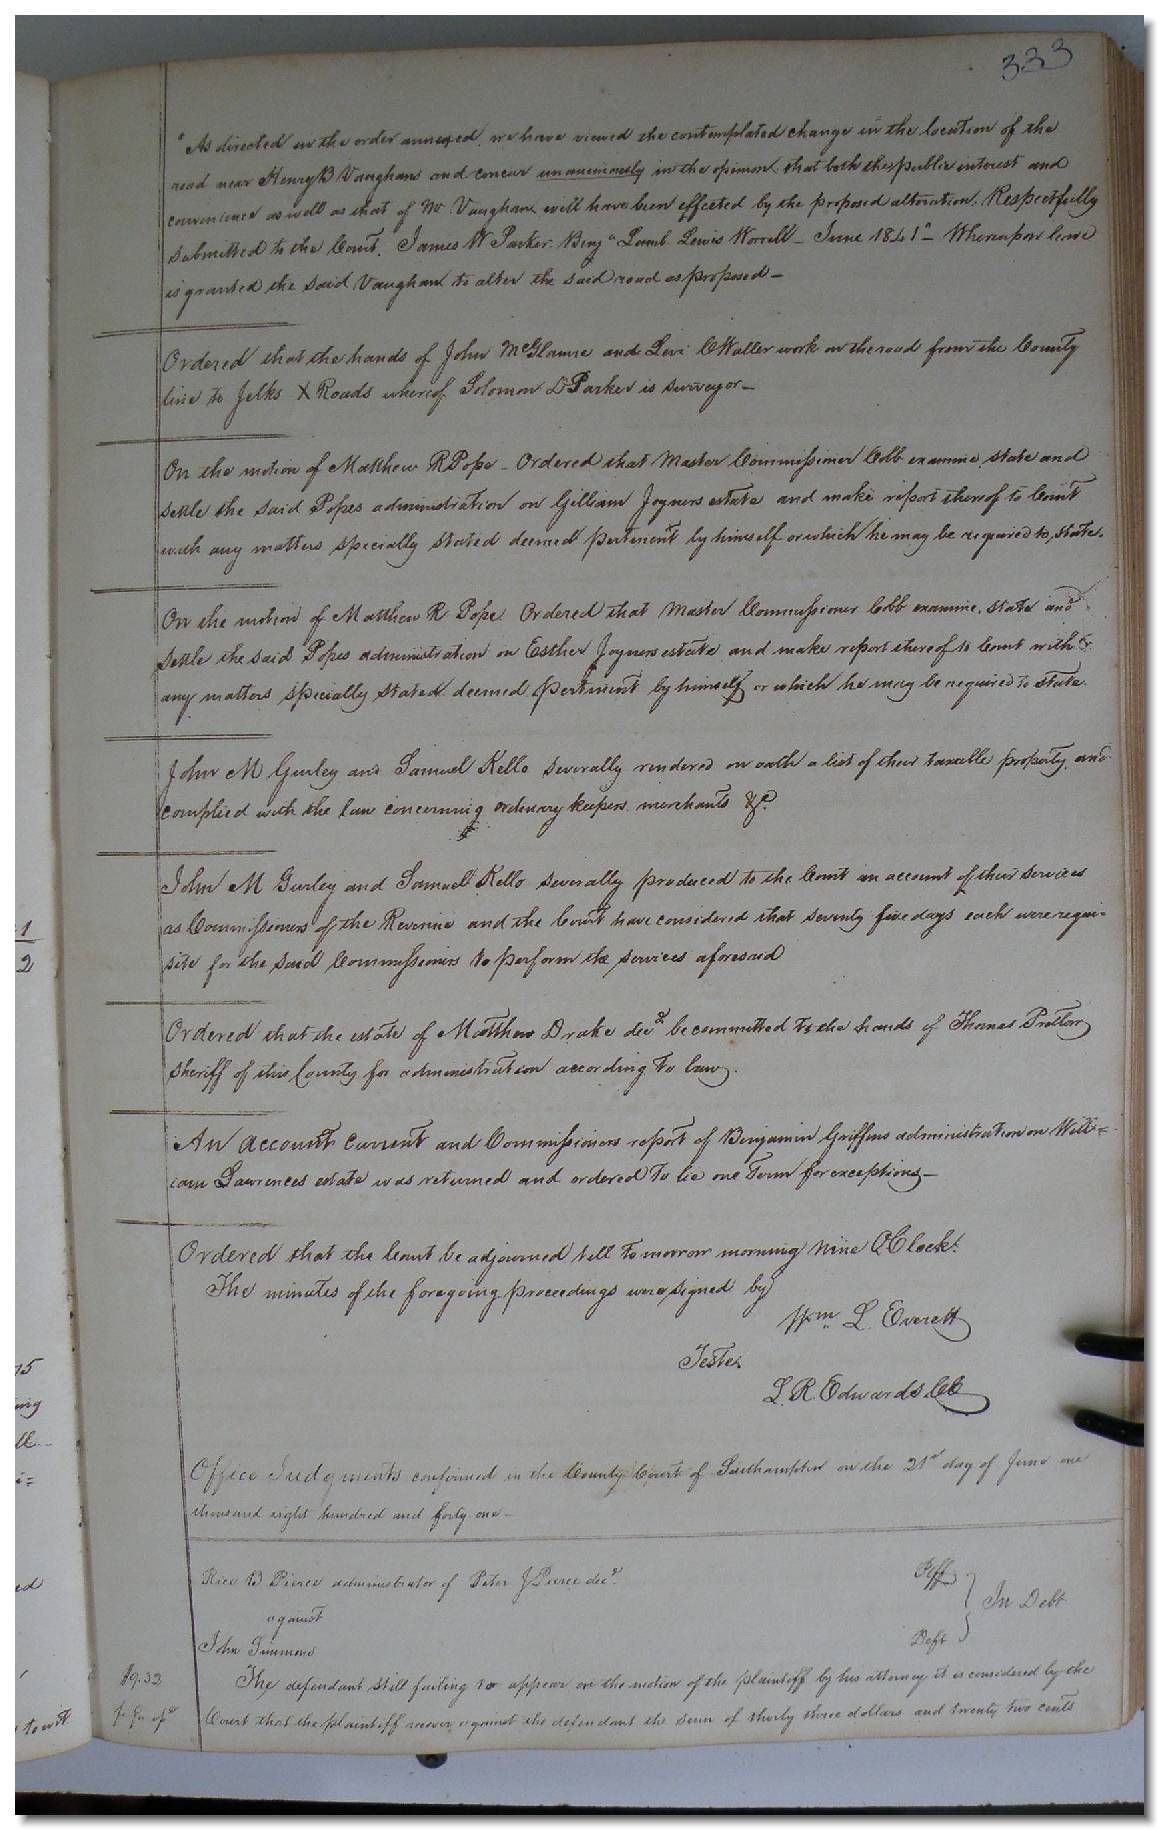 333
"As directed in the order annexed, we have viewed the contemplated change in the location of the
road near Henry B Vaughans and concur unanimously in the opinion that both the public interest and
convenience as well as that of Mr Vaughan will have been effected by the proposed alteration. Respectfully
submitted to the Court. James W Parker. Benja Lamb. Lewis Worrell - June 1841" - Whereupon leave
is granted the said Vaughan to alter the said road as proposed -
Ordered that the hands of John McGlaune and Levi C Waller work on the road from the County
line to Jelks X Roads whereof Solomon D Parker is surveyor -
On the motion of Matthew R Pope - Ordered that Master Commissioner Cobb examine, state and
settle the said Popes administration on Gilliam Joyners estate and make report thereof to Court
with any matters specially stated deemed pertinent by himself or which he may be required to, state.
On the motion of Matthew R Pope. Ordered that Master Commissioner Cobb examine, state and
settle the said Popes administration on Esther Joyners estate and make report thereof to Court with
any matters specially stated deemed pertinent by himself or which he may be required to state.
John M Gurley and Samuel Kello severally rendered on oath a list of their taxable property, and
complied with the law concerning ordinary keepers merchants &c.
John M Gurley and Samuel Kello severally produced to the Court an account of their services
as Commissioners of the Revenue and the Court have considered that seventy five days each were requi=
site for the said Commissioners to perform the services aforesaid
Ordered that the estate of Matthew Drake decd be committed to the hands of Thomas Pretlow
Sheriff of this County for administration according to law.
An account current and Commissioners report of Benjamin Griffins administration on Willi=
iam Lawrences estate was returned and ordered to lie one Term for exceptions -
Ordered that the Court be adjourned till tomorrow morning nine O Clock.
The minutes of the foregoing proceedings were signed by
Wm L. Everett
Teste.
L. R. Edwards CC
Office Judgments confirmed in the County Court of Southampton on the 21st day of June one
thousand eight hundred and forty one -
Rice B Pierce administrator of Peter J Pierce decd. Plff
against } In Debt
John Simmons Deft
The defendant still failing to appear on the motion of the plaintiff by his attorney it is considered by the
Court that the plaintiff recover against the defendant the sum of thirty three dollars and twenty two cents
1
2
75
ing
ed
to wit